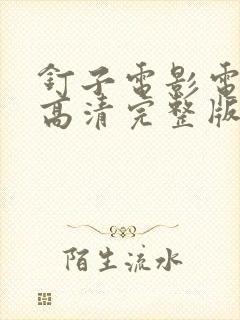 釘子電影電
高清完整版
陌生流水